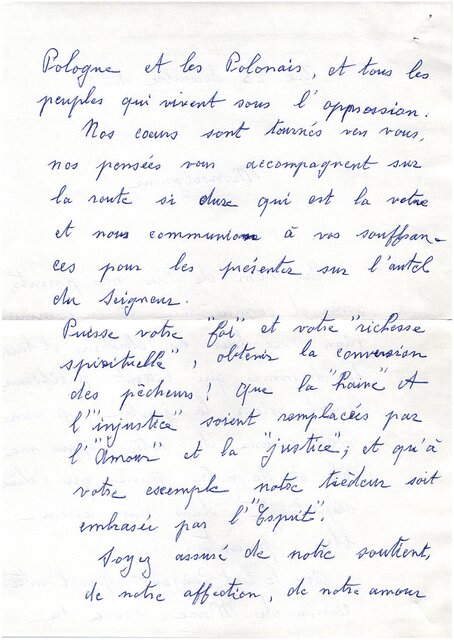 Pologne et les Polonais, et tous les
peuples qui vivent sous l'oppression.
Nos coeurs sont tournés vers vous,
nos pensées vous accompagnent sur
la route si dure qui est la votre
et nous communions à vos souffran-
ces pour les présenter sur l'autel
du Seigneur.
Puisse votre "foi" et votre "richesse
spirituelle", obtenir la conversion
des pêcheurs! Que la "haine" et
l'"injustice" soient remplacées par
l'"Amour" et la "justice"; et qu'à
votre exemple notre tiédeur soit
embrasée par l'"Esprit".
Soyez assuré de notre soutient,
de notre affection, de notre amour